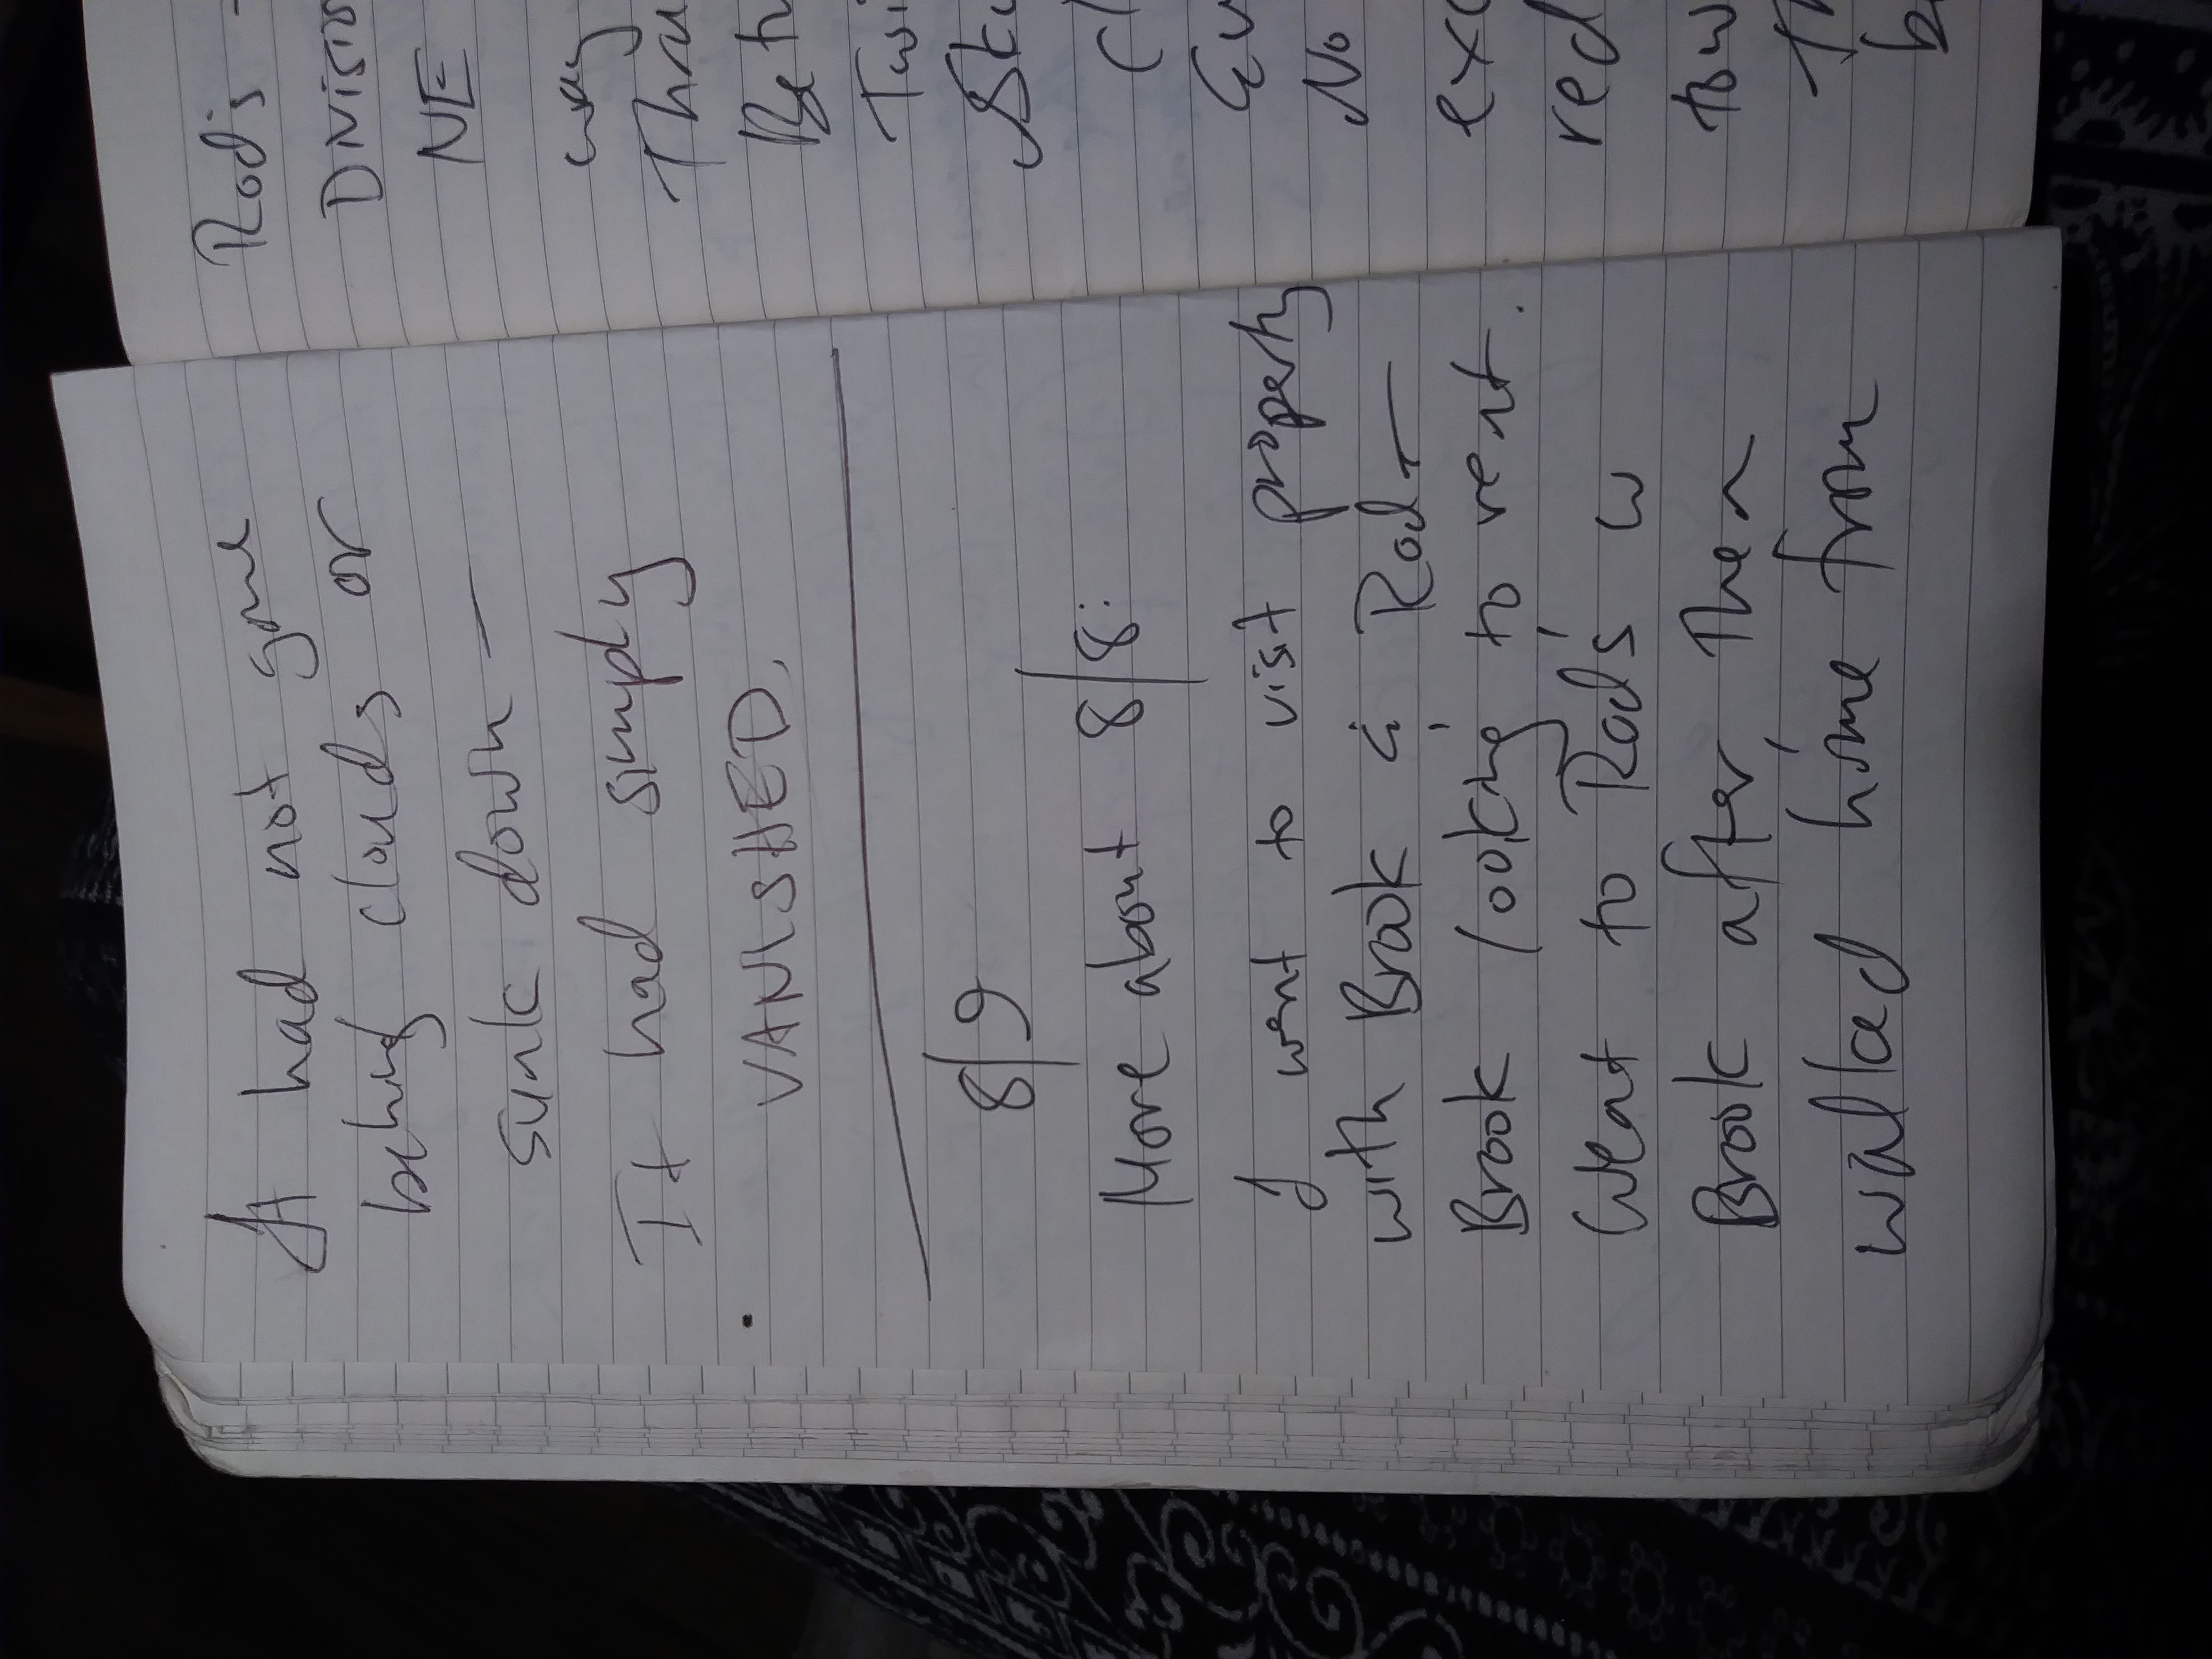 It had not gone
behind clouds or
sunk down —
It had simply
VANISHED.
8/9
More about 8/8:
I went to vist property
with Brook & Rod —
Brook looking to rent.
Went to Rod's w
Brook after then
walked home from
Rod's -
Division
NE
way
Tha
Beth
Twi
No
exc
red
tow
Th
b